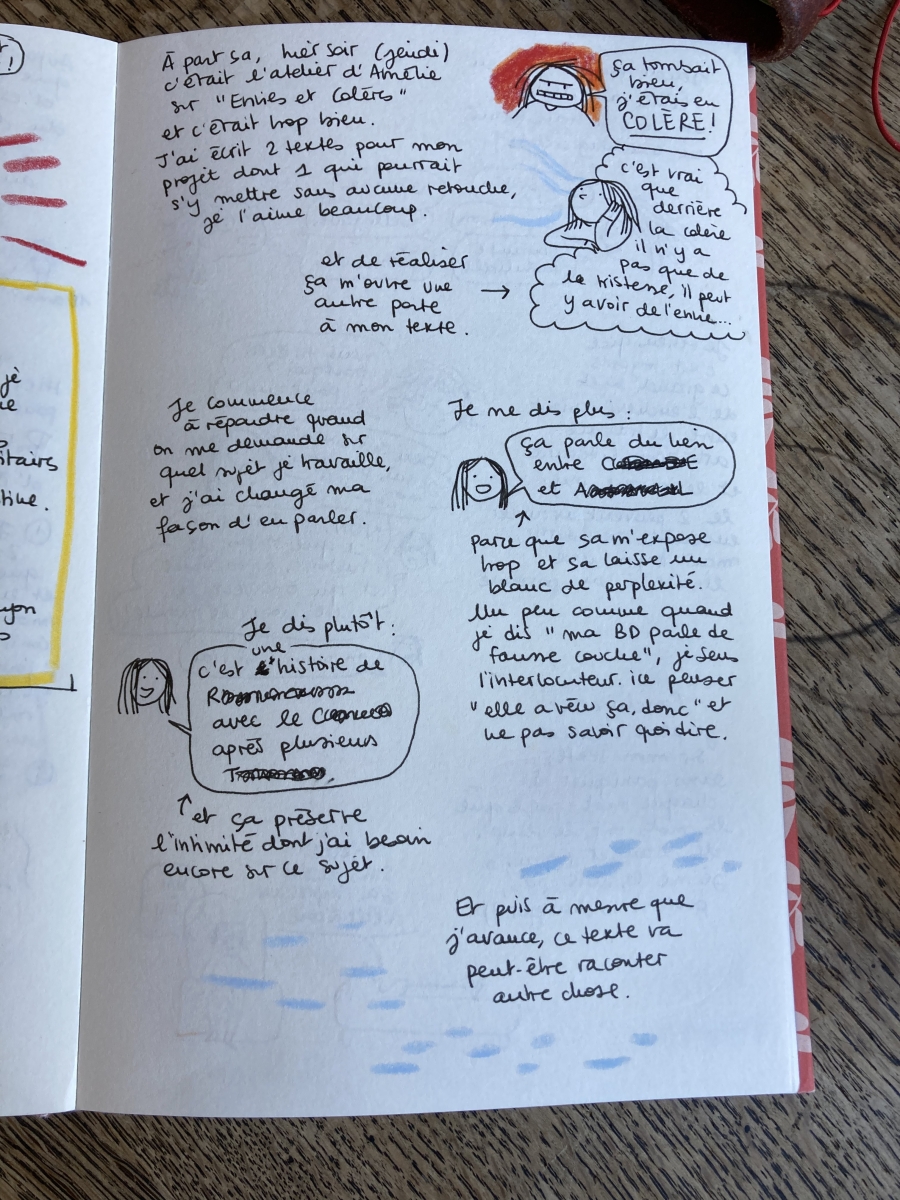 À part ça, hier soir (jeudi)
c'était l'atelier d'Amélie
sur "Envies et Colères"
et c'était trop bien.
J'ai écrit 2 textes pour mon
projet dont 1 qui pourrait
s'y mettre sans aucune retouche,
je l'aime beaucoup.
ça tombait
bien,
j'étais en
COLÈRE !
c'est vrai
que
derrière
la colère
il n'y a
pas que de
la tristesse, il peut
y avoir de l'envie...
et de réaliser
ça m'ouvre une
autre porte
à mon texte. →
Je commence
à répondre quand
on me demande sur
quel sujet je travaille,
et j'ai changé ma
façon d'en parler.
Je ne dis plus :
ça parle du lien
entre
et
↑
parce que ça m'expose
trop et ça laisse un
blanc de perplexité.
Un peu comme quand
je dis "ma BD parle de
fausse couche", je sens
l'interlocuteur.ice penser
"elle a vécu ça, donc" et
ne pas savoir quoi dire.
Je dis plutôt :
c'est une histoire de
avec le
après plusieurs
↑ et ça préserve
l'intimité dont j'ai besoin
encore sur ce sujet.
Et puis à mesure que
j'avance, ce texte va
peut-être raconter
autre chose.
je
itairs
tive.
yon